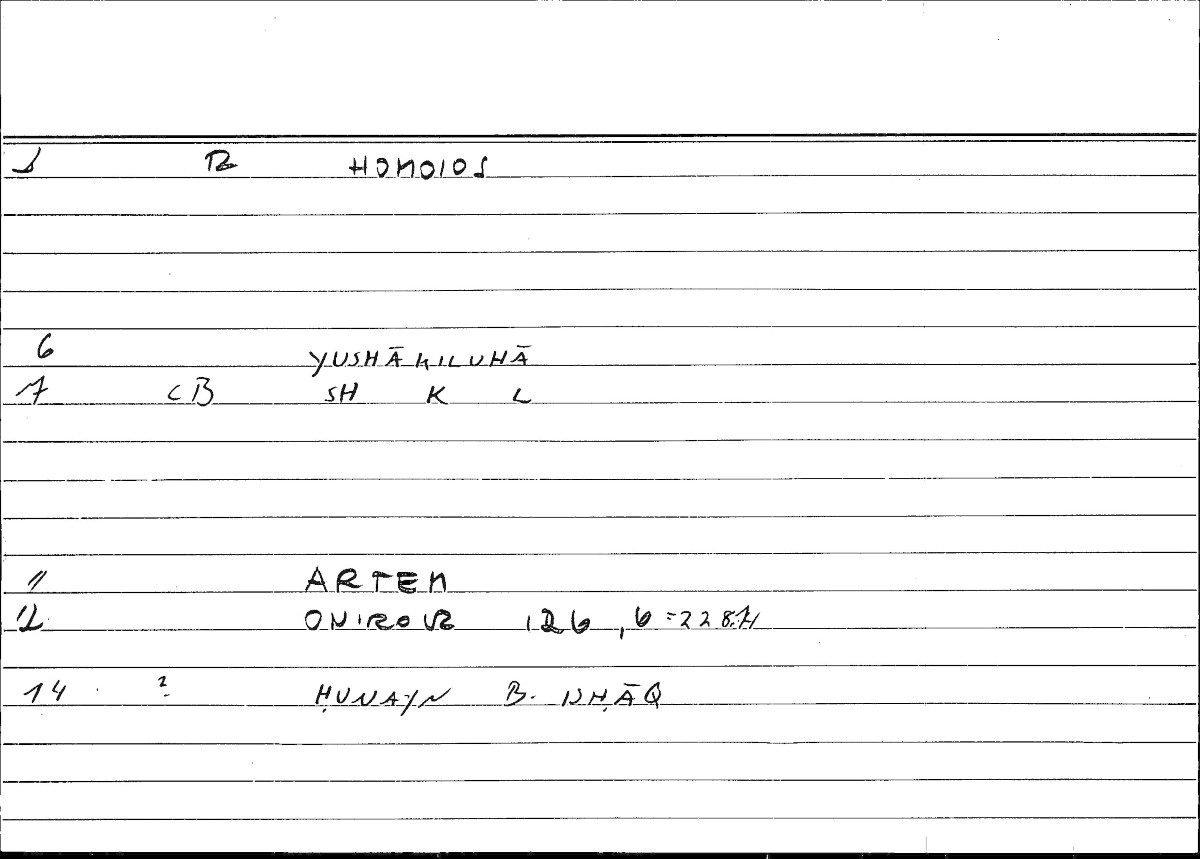 1 R HOMOIOS
6 YUSHĀKILUHĀ
7 CB SH K L
11 ARTEM
12 ONIROCR 126,6=228.7
14 ? ḤUNAYN B. ISḤĀQ